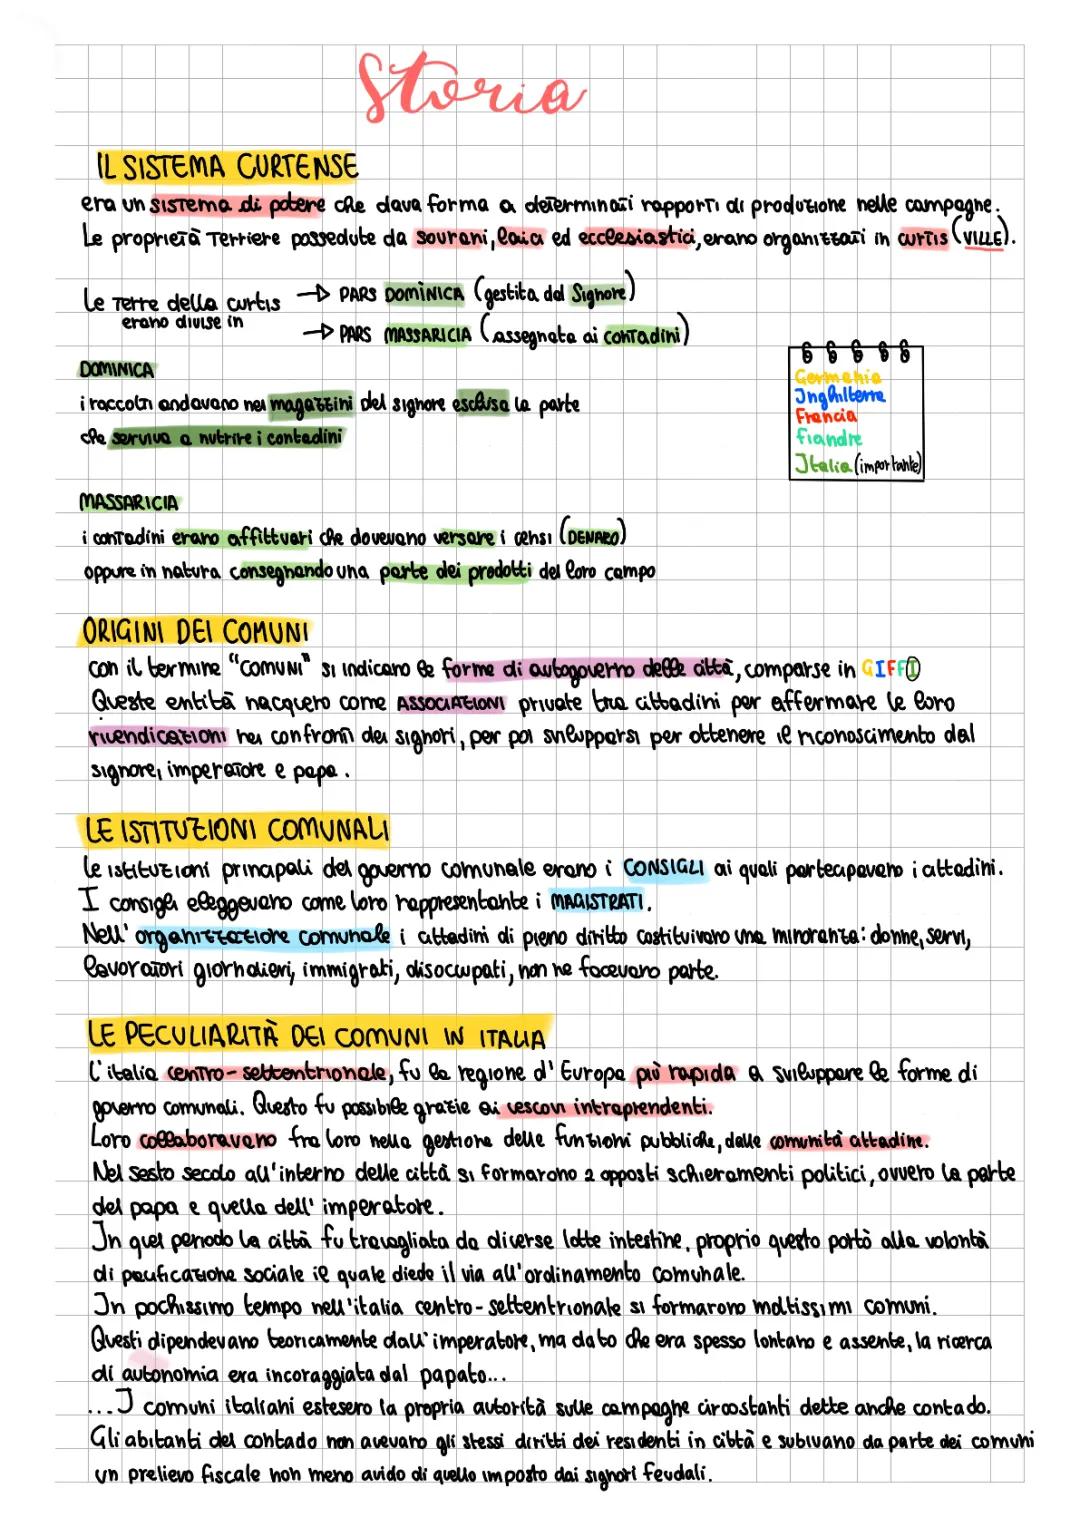 Storia
IL SISTEMA CURTENSE
era un sistema di potere che dava forma a determinati rapporti di produzione nelle campagne.
Le proprietà terriere possedute da sovrani, laici ed ecclesiastici, erano organizzati in curtis (VILLE).
Le terre della curtis
erano divise in
→ PARS DOMINICA (gestita dal Signore)
→ PARS MASSARICIA (assegnata ai contadini)
DOMINICA
i raccolti andavano nei magazzini del signore esclusa la parte
che serviva a nutrire i contadini
Germania
Inghilterra
Francia
fiandre
Italia (importante)
MASSARICIA
i contadini erano affittuari che dovevano versare i censi (DENARO)
oppure in natura consegnando una parte dei prodotti del loro campo
ORIGINI DEI COMUNI
con il termine "COMUNI" si indicano le forme di autogoverno delle città, comparse in GIFFI
Queste entità nacquero come ASSOCIAZIONI private tra cittadini per affermare le loro
rivendicazioni nei confronti dei signori, per poi svilupparsi per ottenere il riconoscimento dal
signore, imperatore e papa.
LE ISTITUZIONI COMUNALI
le istituzioni principali del governo comunale erano i CONSIGLI ai quali partecipavano i cittadini.
I consigli eleggevano come loro rappresentante i MAGISTRATI.
Nell'organizzazione comunale i cittadini di pieno diritto costituivano una minoranza: donne, servi,
lavoratori giornalieri, immigrati, disoccupati, non ne facevano parte.
LE PECULIARITÀ DEI COMUNI IN ITALIA
L'italia centro-settentrionale, fu la regione d'Europa più rapida a sviluppare le forme di
governo comunali. Questo fu possibile grazie ai vescovi intraprendenti.
Loro collaboravano fra loro nella gestione delle funzioni pubbliche, dalle comunità cittadine.
Nel sesto secolo all'interno delle città si formarono 2 opposti schieramenti politici, ovvero la parte
del papa e quella dell'imperatore.
In quel periodo la città fu travagliata da diverse lotte intestine, proprio questo portò alla volontà
di pacificazione sociale il quale diede il via all'ordinamento comunale.
In pochissimo tempo nell'italia centro-settentrionale si formarono moltissimi comuni.
Questi dipendevano teoricamente dall'imperatore, ma dato che era spesso lontano e assente, la ricerca
di autonomia era incoraggiata dal papato...
...I comuni italiani estesero la propria autorità sulle campagne circostanti dette anche contado.
Gli abitanti del contado non avevano gli stessi diritti dei residenti in città e subivano da parte dei comuni
un prelievo fiscale non meno avido di quello imposto dai signori feudali.